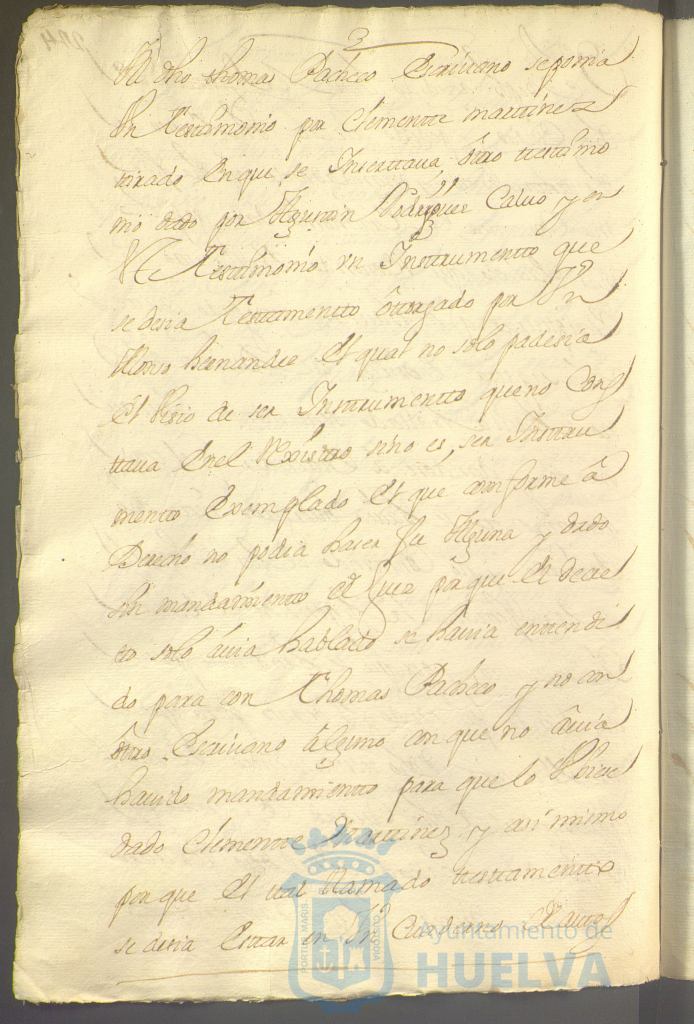 el dho thomas Pacheco Escriuano se ponia
Vn Testimonio por Clemente martinez
tirado En que se Inserttaua, ôtro testimo
nio dado por Agustin Rodriguez Calvo y en
el Testtimonio vn Instrumento que
se desia Testtamentto ôttorgado por
Alonso hernandez El qual no solo padesia
El Visio de ser Instrumentto que no Cons
ttaua En el Rexistro sino es, ser Instru
mentto Exemplado El que comforme â
Derecho no podia haser fee Alguna y dado
sin mandamiento de Juez porque El decre
to solo âuia hablado se hauia entendi
do para con Thomas Pacheco y no con
ôtro Escriuano Alguno con que no âuia
hauido mandamiento para que lo Vbiese
dado Clemente Martinez y asimismo
por que El tal llamado testtamentto
se desia Estar en
Ayuntamiento de
HUELVA